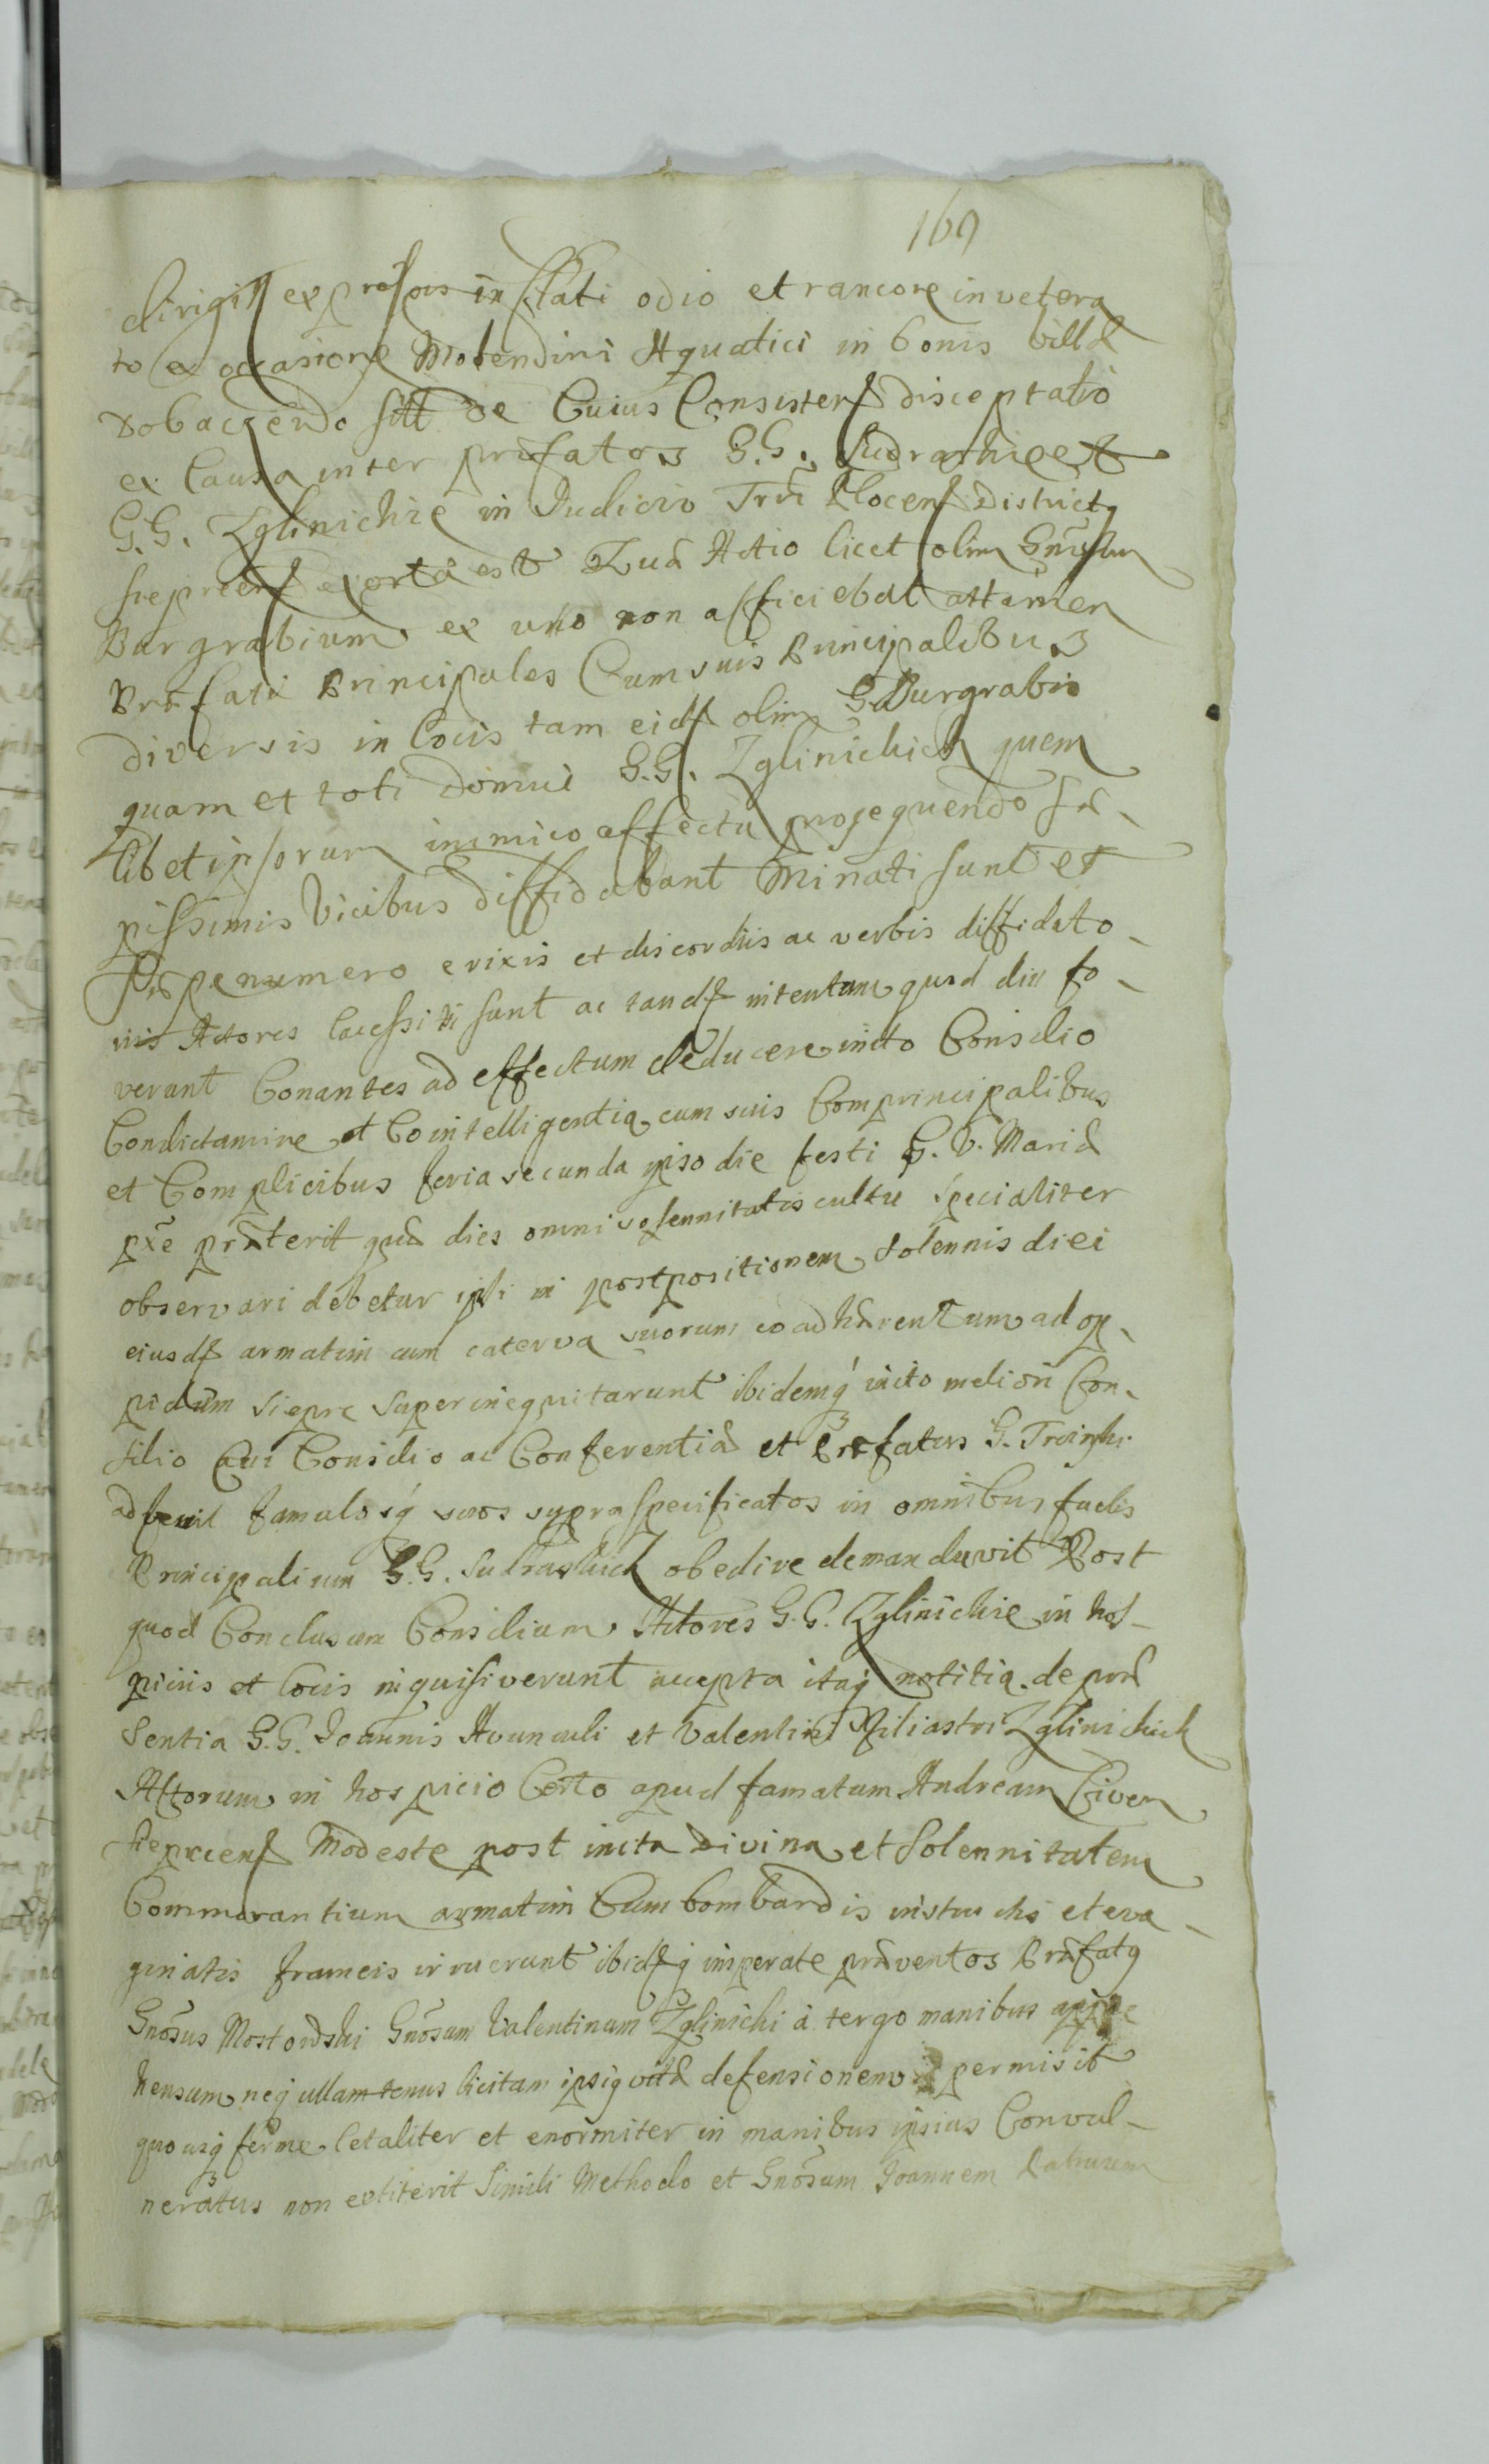 169
odio et rancore invetera
to ex occasione Molendini Aquatici in bonis villæ
sitt de Cuius Consisten disceptatio
ex Causa inter præfatos G.G. et
G.G. Zglinickie in Judicio Trri Plocens Districtq
Sieprcens exorta est Quæ Actio licet olim Gnosum
Burgrabium ex uno non afficiebat attamen
Præfati Principales Cum suis Principalibus
diversis in locis tam eid olim G. Burgrabio
quam et toti Domui G.G. Zglinickich quem
libet ipsorum inimico affectu prosequendo sæ-
pissimis Vicibus diffidabant Minati sunt et
sæpenumero e rixis et discordiis ac verbis diffidato-
riis Actores lacessiti sunt ac tand intentum quod diu fo-
verant Conantes ad effectum deducere inito Consilio
Condictamine et Cointelligentia cum suis Comprincipalibus
et Complicibus feria secunda ipso die festi B. V. Mariæ
pxe præterit quæ dies omni solennitatis cultu specialiter
observari debetur ipsi in postpositionem solennis diei
eiusd armatim cum caterva suorum coadhærentium ad op-
pidum Siepre superinequitarunt ibidemq inito meliori Con-
silio Cui Consilio ac Conferentiæ et Præfatus G.
adfuit famulosq suos supra specificatos in omnibus factis
Principalium G.G. obedire demandavit Post
quod Conclusum Consilium Actores G.G. Zglinickie in hos-
piciis et locis inquisiverunt accepta itaq notitia de præ
sentia G.G. Joannis Avunculi et Valentini Filiastri Zglinickich
Actorum in hospicio Certo apud famatum Andream Civem
Sieprcens Modeste post incta Divina et Solennitatem
Commorantium armatim Cum bombardis instructis et eva-
ginatis frameis irruerunt ibidq insperate præventos Præfatq
Gnosus Mostowski Gnosum Valentinum Zglinicki à tergo manibus appre
hensum neq ullam tenus licitam ipsiq vitæ defensionem permisit
quousq ferme letaliter et enormiter in manibus ipsius Convul-
neratus non extiterit Simili Methodo et Gnosum Joannem Patruum